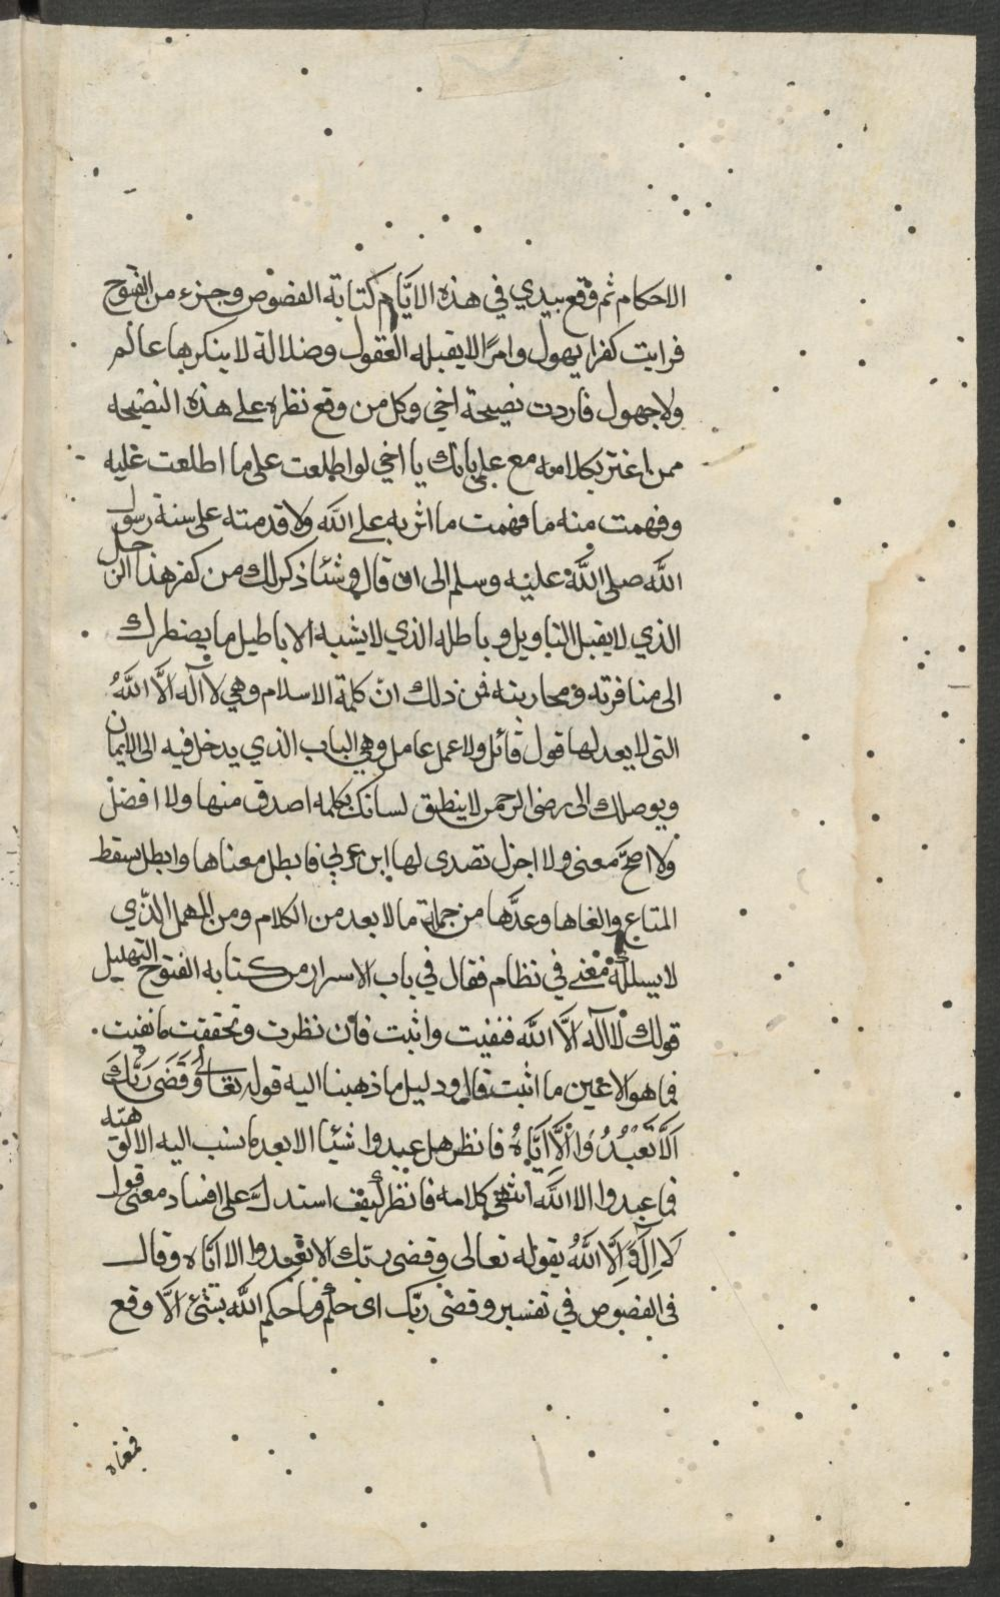 الاحكام ثم وقع بيدي في هذه الايّام كتابة الفصوص وجزء من الفتوح
فرايت كفرا يهول وامرًا لا يقبله العقول وضلالة لا ينكرها عالم
ولا جهول فاردت نصيحة اخي وكل من وقع نظره على هذه النصيحه
ممن اغتر بكلامه مع علمي بانك يا اخي لو اطلعت على ما اطلعت عليه
وفهمت منه ما فهمت ما اثر به على الله ولا قدمته على سنة رسول
الله صلى اللهُ عليه وسلم الى ان قال وشئا ذكر لك من كفر هذا الرجل
الذي لا يقبل التاويل وباطله الذي لا يشبه الاباطيل ما يضطرك
الى منافرته ومحاربته فمن ذلك انّ كلمة الاسلام وهي لا آله الَّا اللهُ
التى لا يعدلها قول قائل ولا عمل عامل وهي الباب الذي يدخل فيه الى الايمان
ويوصلك الى رضى الرحمن لا ينطق لسانك بكلمه اصدق منها ولا افضل
ولا اصحَّ معنى ولا اجزل تصدى لها ابن عربي فابطل معناها وابطل سقط
المتاع والغاها وعدَّها من جملة ما لا يعد من الكلام ومن المهمل الذّي
لا يسلك معنى في نظام فقال في باب الاسرار من كتابه الفتوح التهليل
قولك لا آله الَّا الله فنفيت واثبت فان نظرت وتحققت ما نفيت .
فما هو الا عين ما اثبت قال ودليل ما ذهبنا اليه قوله تعالى وَقَضَى رَبُّكَ
اَلَّا تَعْبُدُوا اِلَّا اَيَّاهُ فانظر هل عبدوا شيئا الا بعد ما نسب اليه الالوهته
فما عبدوا الا الله انتهى كلامه فانظر كيف استدل على افساد معنى قول
لَا اِلَهَ اِلَّا اللهُ بقوله تعالى وقضى ربّك الا تعبدوا الا ايّاه وقال
فى الفصوص في تفسير وقضى ربّك اى حكم وما حكم الله بشئ الَّا وقع
فمعناه